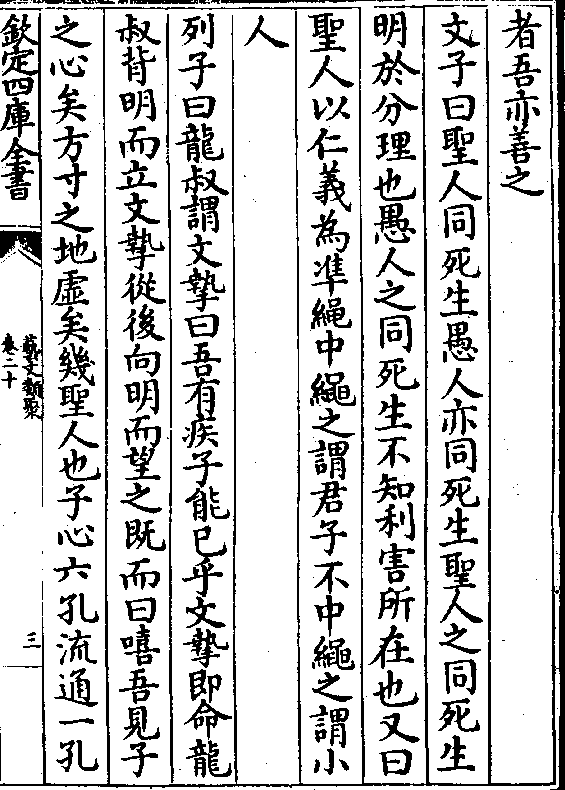 者吾亦善之
文子曰聖人同死生愚人亦同死生聖人之同死生
明於分理也愚人之同死生不知利害所在也又曰
聖人以仁義為准繩中繩之謂君子不中繩之謂小
人
列子曰龍叔謂文摯曰吾有疾子能已乎文摯即命龍
叔背明而立文摯從後向明而望之既而曰嘻吾見子
之心矣方寸之地虛矣幾聖人也子心六孔流通一孔
欽定四庫全書
藝文類聚
卷二十
三